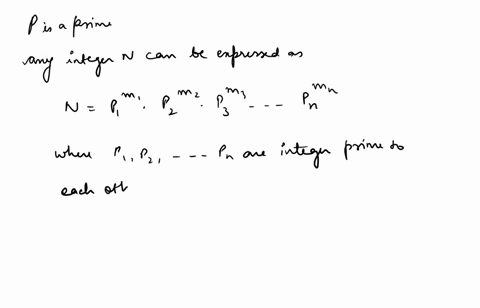 P is a prime
any integer N can be expressed as
N = P₁^m₁ · P₂^m₂ · P₃^m₃ --- Pₙ^mₙ
where P₁, P₂, --- Pₙ are integer prime to
each oth